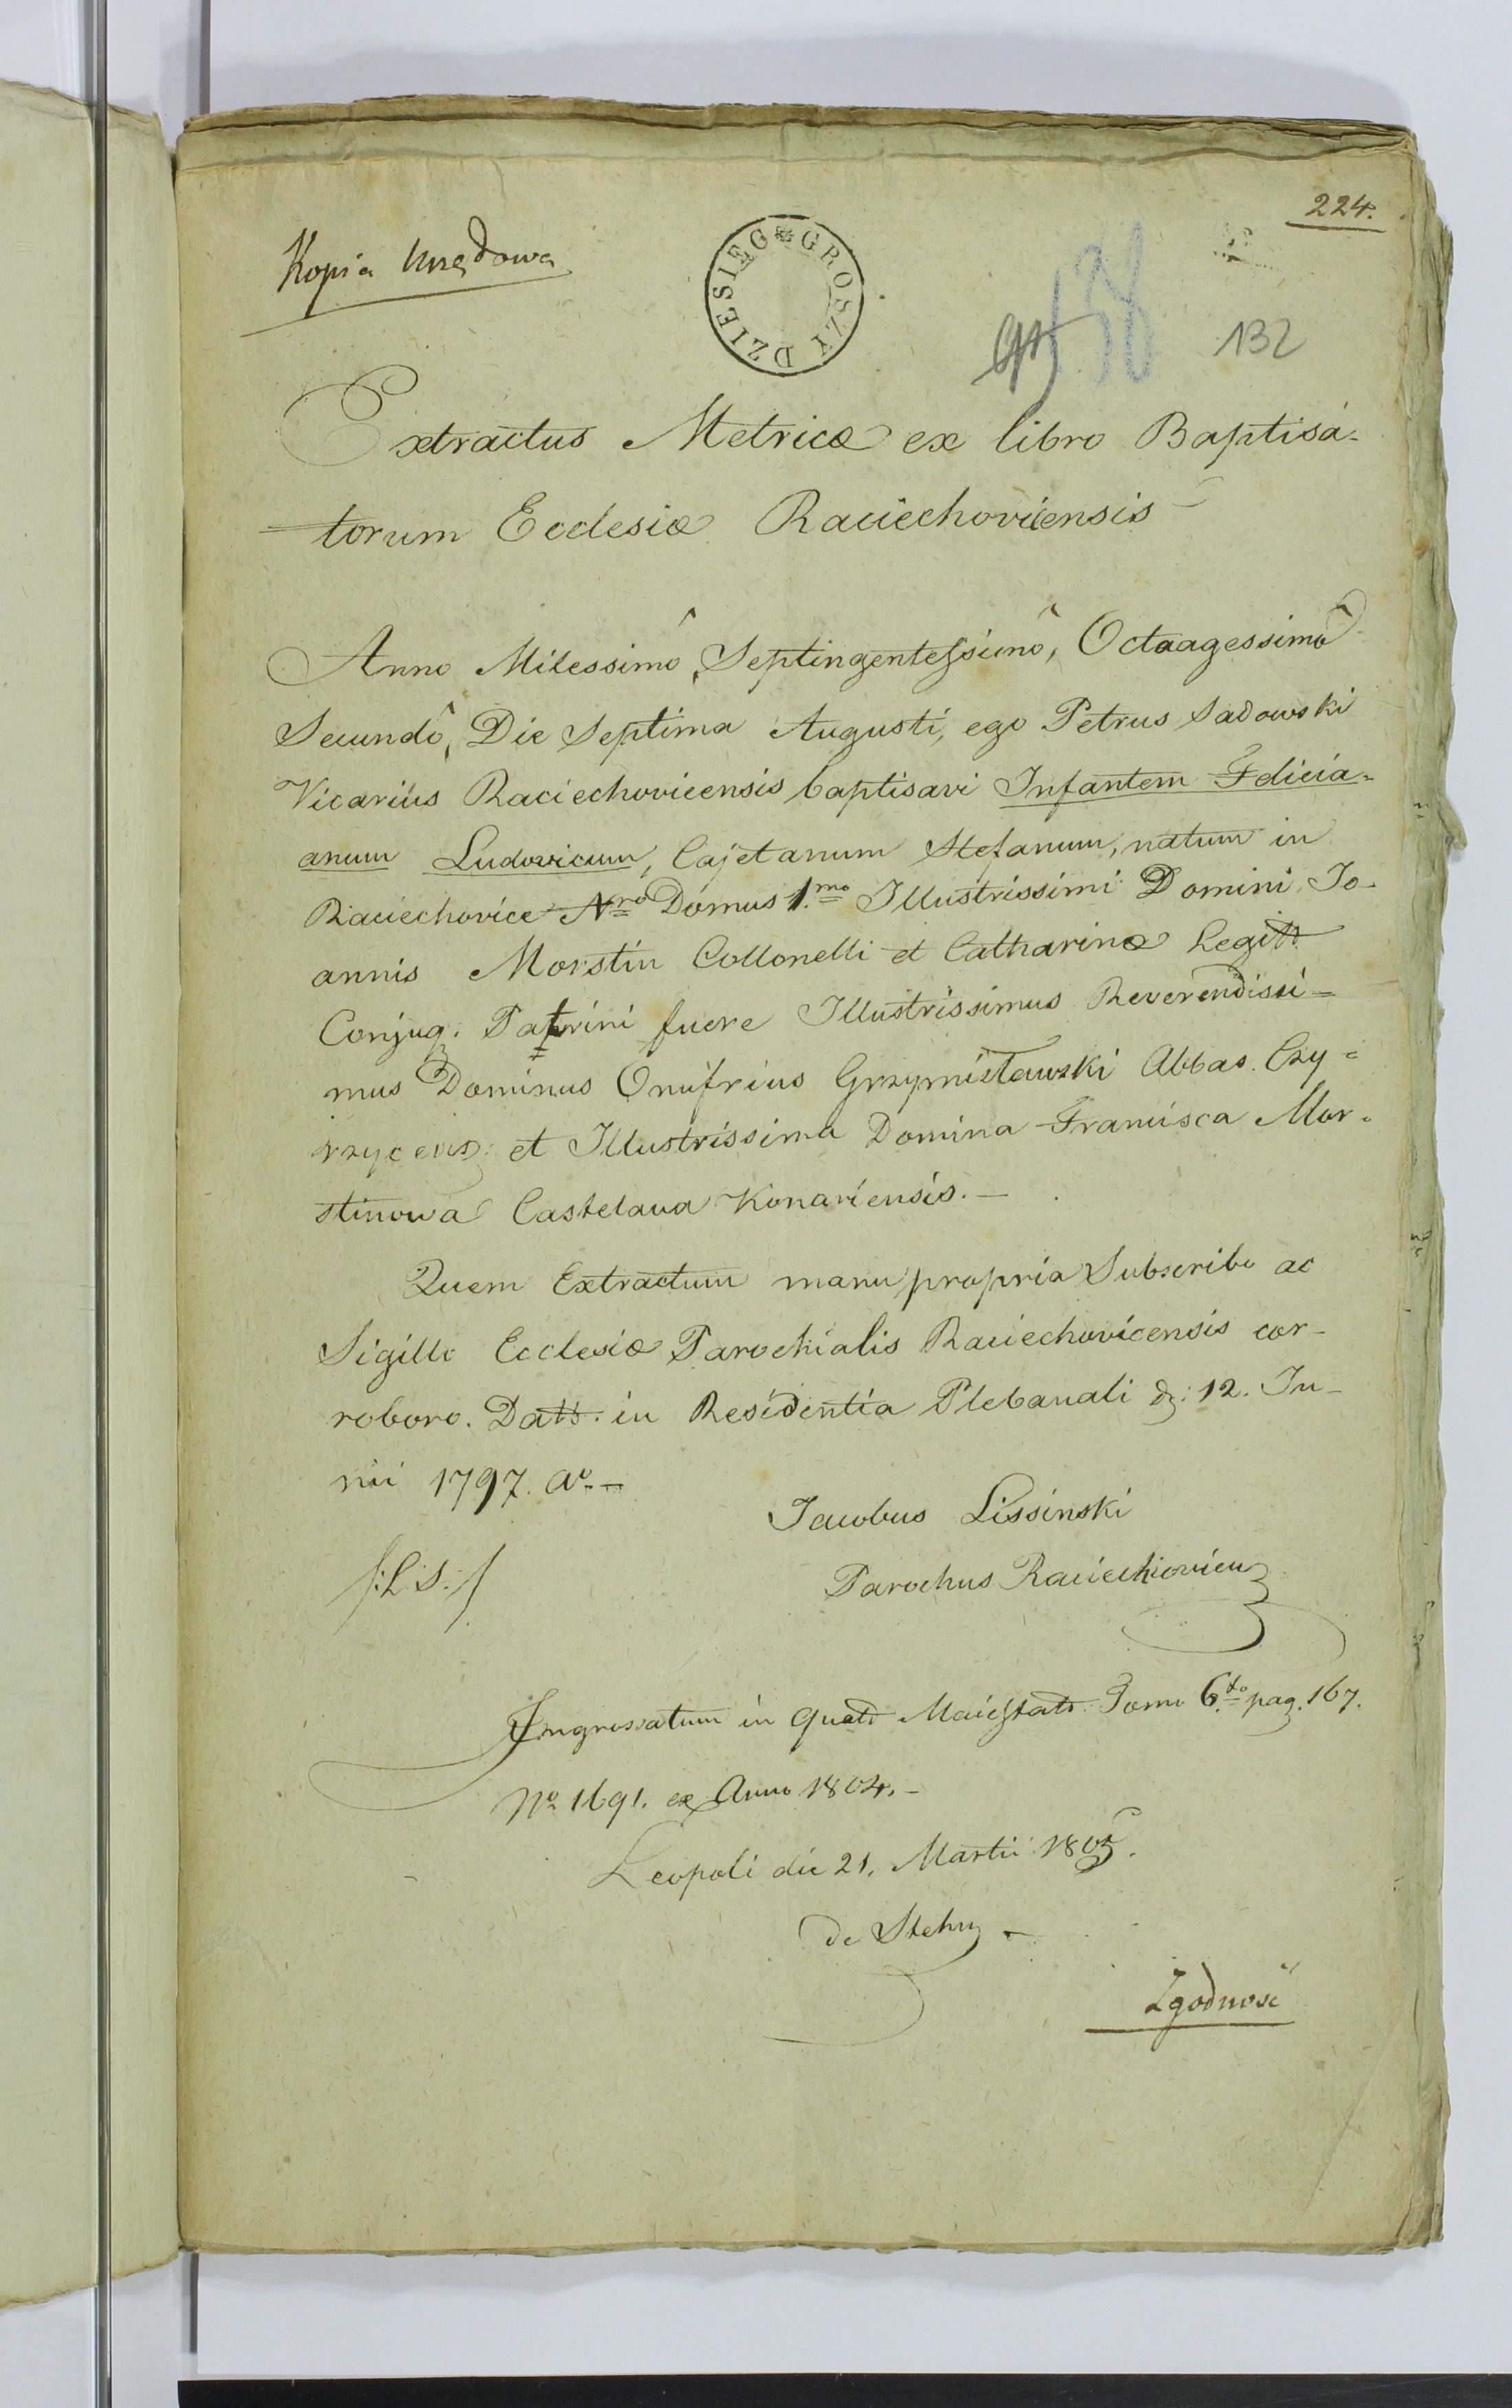 224.
Kopia Urzędowa
DZIESIĘC GROSZY
132
Extractus Metricæ ex libro Baptisa-
torum Ecclesiæ Raciechovicensis
Anno Milessimô, Septingentessimô, Octaagessimô
Secundô, Die Septima Augusti, ego Petrus Sadowski
Vicarius Raciechovicensis baptisavi Infantem Felicia-
anum Ludovicum, Cajetanum Stefanum, natum in
Raciechovice Nro Domus 1.mo Illustrissimi Domini Jo-
annis Morstin Collonelli et Catharinæ Legitt.
Conjug: Patrini fuere Illustrissimus Reverendissi=
mus Dominus Onufrius Grzymisławski Abbas. Czy=
rzycens: et Illustrissima Domina Francisca Mor-
stinowa Castelana Konariensis.—
Quem Extractum manu propria Subscribo ac
Sigillo Ecclesiæ Parochialis Raciechovicensis cor-
roboro. Datt: in Residentia Plebanali d: 12. Ju-
nii 1797. Ao.—
Jacobus Lissinski
/:L.S.:/
Parochus Raciechovicen
Ingrossatum in Quat: Maiestat: Tomo 6.to pag. 167.
No 1691. ex Anno 1804.—
Leopoli die 21. Martii 1805.
de Stehn
Zgodność